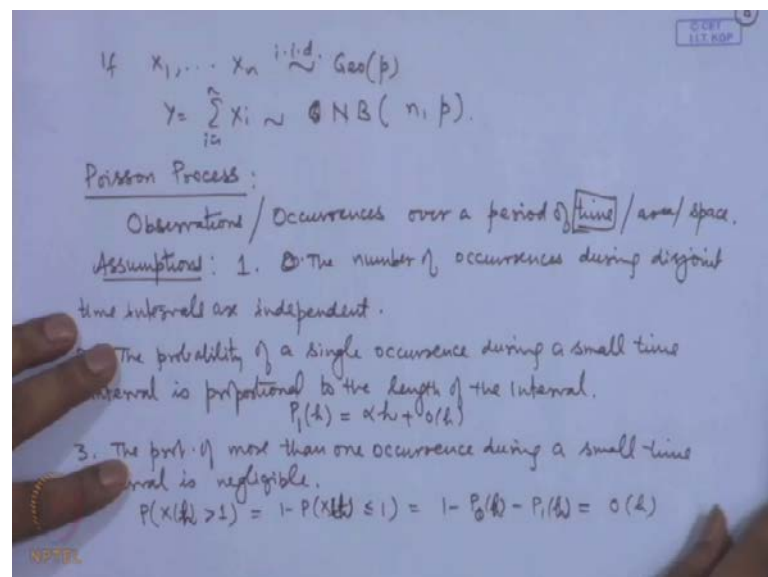 8
© CET
I.I.T. KGP
If X₁, ... Xₙ i.i.d. ~ Geo(p)
Y = Σ Xi ~ NB( n, p).
Poisson Process :
Observations / Occurrences over a period of time / area / space.
Assumptions : 1. The number of occurrences during disjoint
time intervals are independent.
The probability of a single occurrence during a small time
interval is proportional to the length of the interval.
P₁(h) = αh + o(h)
3. The prob. of more than one occurrence during a small time
is negligible.
P(X(h) > 1) = 1 - P(X(h) ≤ 1) = 1 - P₀(h) - P₁(h) = o(h)
NPTEL